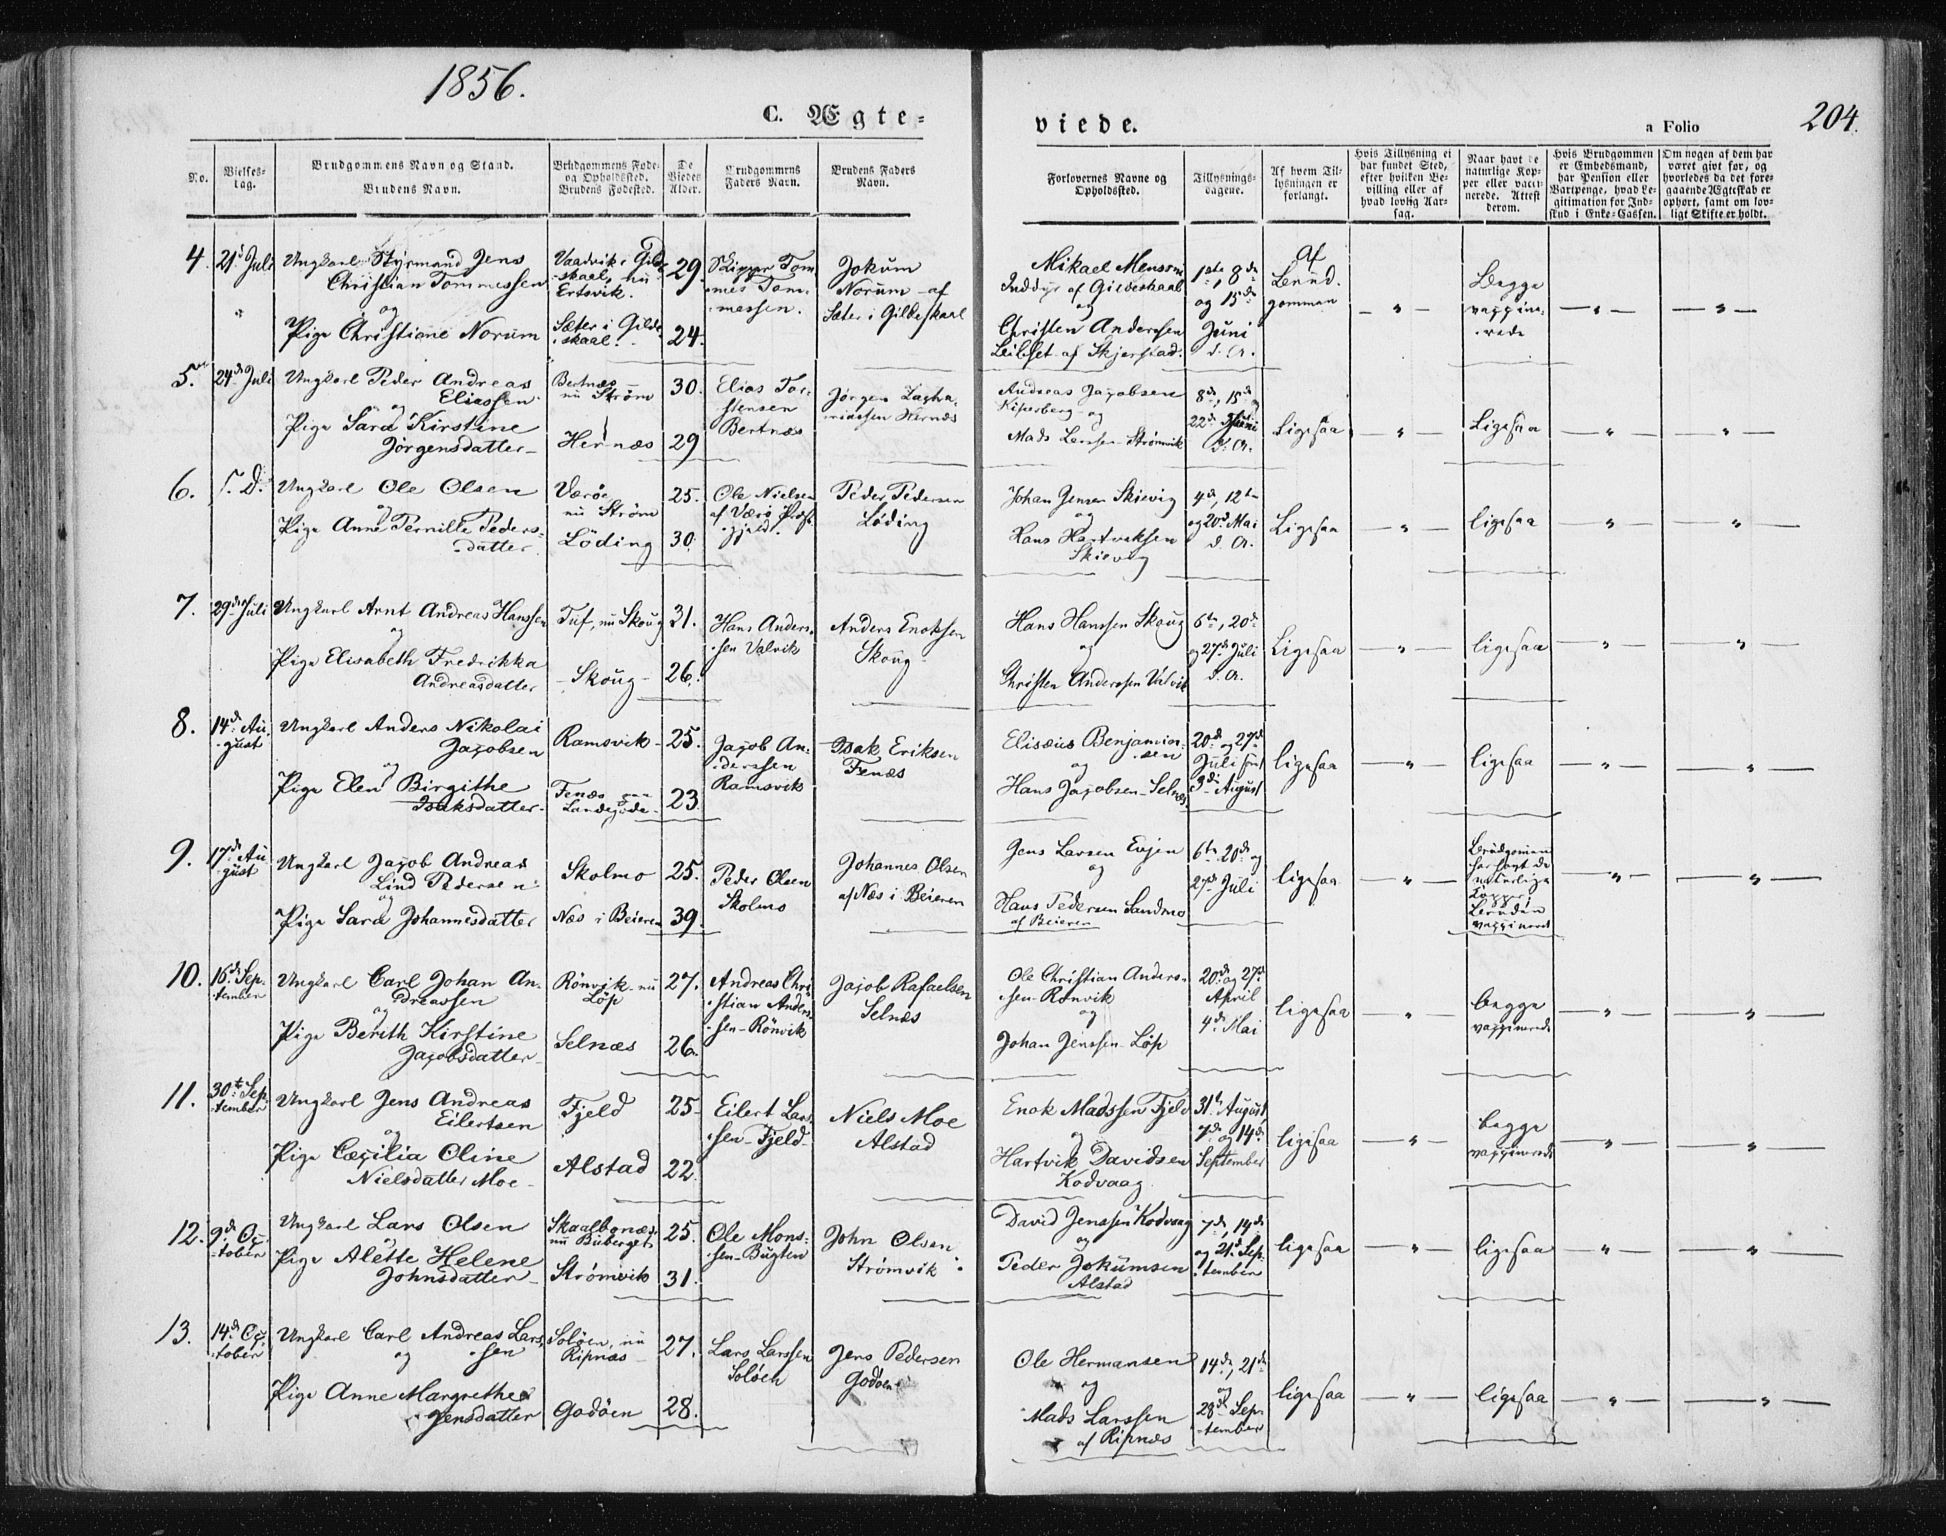 1856.
C. Ægte=
viede.
a Folio
204.
No.
Vielses-
dag.
Brudgommens Navn og Stand.
Brudens Navn.
Brudgommens Føde-
og Opholdssted.
Brudens Fødested.
De
Viedes
Alder.
Brudgommens
Faders Navn.
Brudens Faders
Navn.
Forlovernes Navne og
Opholdssted.
Tillysnings-
dagene.
Af hvem Til-
lysningen er
forlangt.
Hvis Tillysning ei
har fundet Sted,
efter hvilken Be-
villing eller af
hvad lovlig Aar-
sag.
Naar havt de
naturlige Kop-
per eller vacci-
nerede. Attest
derom.
Hvis Brudgommen
er Embedsmand,
har Pension eller
Vartpenge, hvad Le-
gitimation for Ind-
skud i Enke-Cassen.
Om nogen af dem har
været givt før, og
hvorledes da det fore-
gaaende Ægteskab er
ophørt, samt om lov-
ligt Skifte er holdt.
4. 21d Juli
Ungkarl Styrmand Jens
Christian Tommessen
og
Pige Christiane Norum
Vaadvik i Gilde
skaal, nu
Ertsvik.
Sæter i Gilde
skaal.
29.
24.
Skipper Tom
mes Tom
messen.
Jokum
Norum af
Sæter i Gildeskaal
Mikael Mensen
Inddyr af Gildeskaal
og
Christen Anderssen
Leilset af Skjerstad.
1ste, 8de
og 15de
Juni
d. A.
Af
Brud-
gommen
— " —
Begge
vaccine-
rede
— " —
— " —
5. 24de Juli
Ungkarl Peder Andreas
Eliassen
og
Pige Sara Kirstine
Jörgensdatter
Bertnæs
nu Ström
Hernæs
30.
29
Elias Tor-
stensen
Bertnæs
Jørgen Zacha-
riassen Hernæs
Andreas Jacobsen
Kiperberg og
Mads Larssen Strømvik
8de, 15de og
22de Juni
d. A.
Ligesaa
— " —
Ligesaa
— " —
— " —
6. s. D.
Ungkarl Ole Olsen
og
Pige Anne Pernille Peders-
datter.
Værøe
nu Ström
Löding
25.
30.
Ole Nielsen
af Værø Præste-
gjeld.
Peder Pedersen
Löding
Johan Jensen Skievig
og
Hans Hartviksen
Skievig
4de, 12te
og 20de Mai
d. A.
Ligesaa
— " —
ligesaa
"
"
7. 29de Juli
Ungkarl Arnt Andreas Hanssen
og
Pige Elisabeth Fredrikka
Andreasdatter
Tuf, nu Skoug
Skoug
31.
26.
Hans Anders-
sen Valvik
Anders Enoksen
Skoug
Hans Hanssen Skoug
og
Christen Anderssen Valvik
6te, 20de
og 27de Juli
d. A.
Ligesaa
— " —
ligesaa
— " —
"
8. 14de Au-
gust
Ungkarl Anders Nikolai
Jacobsen
og
Pige Elen Birgithe
Isaksdatter
Ramsvik
Fenæs paa
Landegode
25.
23.
Jacob An-
derssen
Ramsvik
Isak Eriksen
Fenæs
Elisæus Benjamin-
sen
og
Hans Jacobsen Selnæs.
20de og 27de
Juli samt
3die August
ligesaa
— " —
ligesaa
— " —
"
9. 17de Au-
gust
Ungkarl Jacob Andreas
Lind Pedersen
og
Pige Sara Johannesdatter
Skolmo
Næs i Beieren
25.
39.
Peder Olsen
Skolmo
Johannes Olsen
af Næs i Beieren
Jens Larsen Evjen
og
Hans Pedersen Sandmo
af Beieren
6te 20de og
27de Juli
ligesaa
— " —
Brudgommen
har havt de
naturlige
Kopper,
Bruden
vaccineret
— " —
— " —
10. 16de Sep-
tember
Ungkarl Carl Johan An-
dreassen
og
Pige Berith Kirstine
Jacobsdatter
Rönvik nu
Löp
Selnæs
27.
26.
Andreas Chri-
stian Anders-
sen Rönvik
Jacob Rafaelsen
Selnæs
Ole Christian Anders-
sen Rønvik
og
Johan Jenssen Löp
20de og 27de
April
4de Mai
ligesaa
— " —
begge
vaccinerede
— " —
— " —
11. 30te Sep-
tember
Ungkarl Jens Andreas
Eilertsen
og
Pige Cæcilia Oline
Nielsdatter Moe
Fjeld
Alstad
25
22
Eilert Lars-
sen Fjeld
Niels Moe
Alstad
Enok Madssen Fjeld
og
Hartvik Davidsen
Kodvaag
31te August,
7de og 14de
September
ligesaa
— " —
begge
vaccinerede
— " —
— " —
12. 9de Oc-
tober
Ungkarl Lars Olsen
og
Pige Alette Helene
Johnsdatter
Skaalbonæs
nu Buberget
Strömvik
25.
31.
Ole Mons-
sen Bugten
John Olsen
Strömvik
David Jenssen Kodvaag
og
Peder Jokumsen
Alstad
7de, 14de
og 21de Sep-
tember
ligesaa
— " —
ligesaa
— " —
— " —
13. 14de Oc-
tober
Ungkarl Carl Andreas Lars-
sen
og
Pige Anne Margrethe
Jensdatter
Solöen, nu
Ripnæs
Godöen
27.
28.
Lars Larssen
Solöen
Jens Pedersen
Godöen
Ole Hermansen
og
Mads Larssen
af Ripnæs
14de, 21de
og
28de Sep-
tember
ligesaa
— " —
ligesaa
— " —
— " —